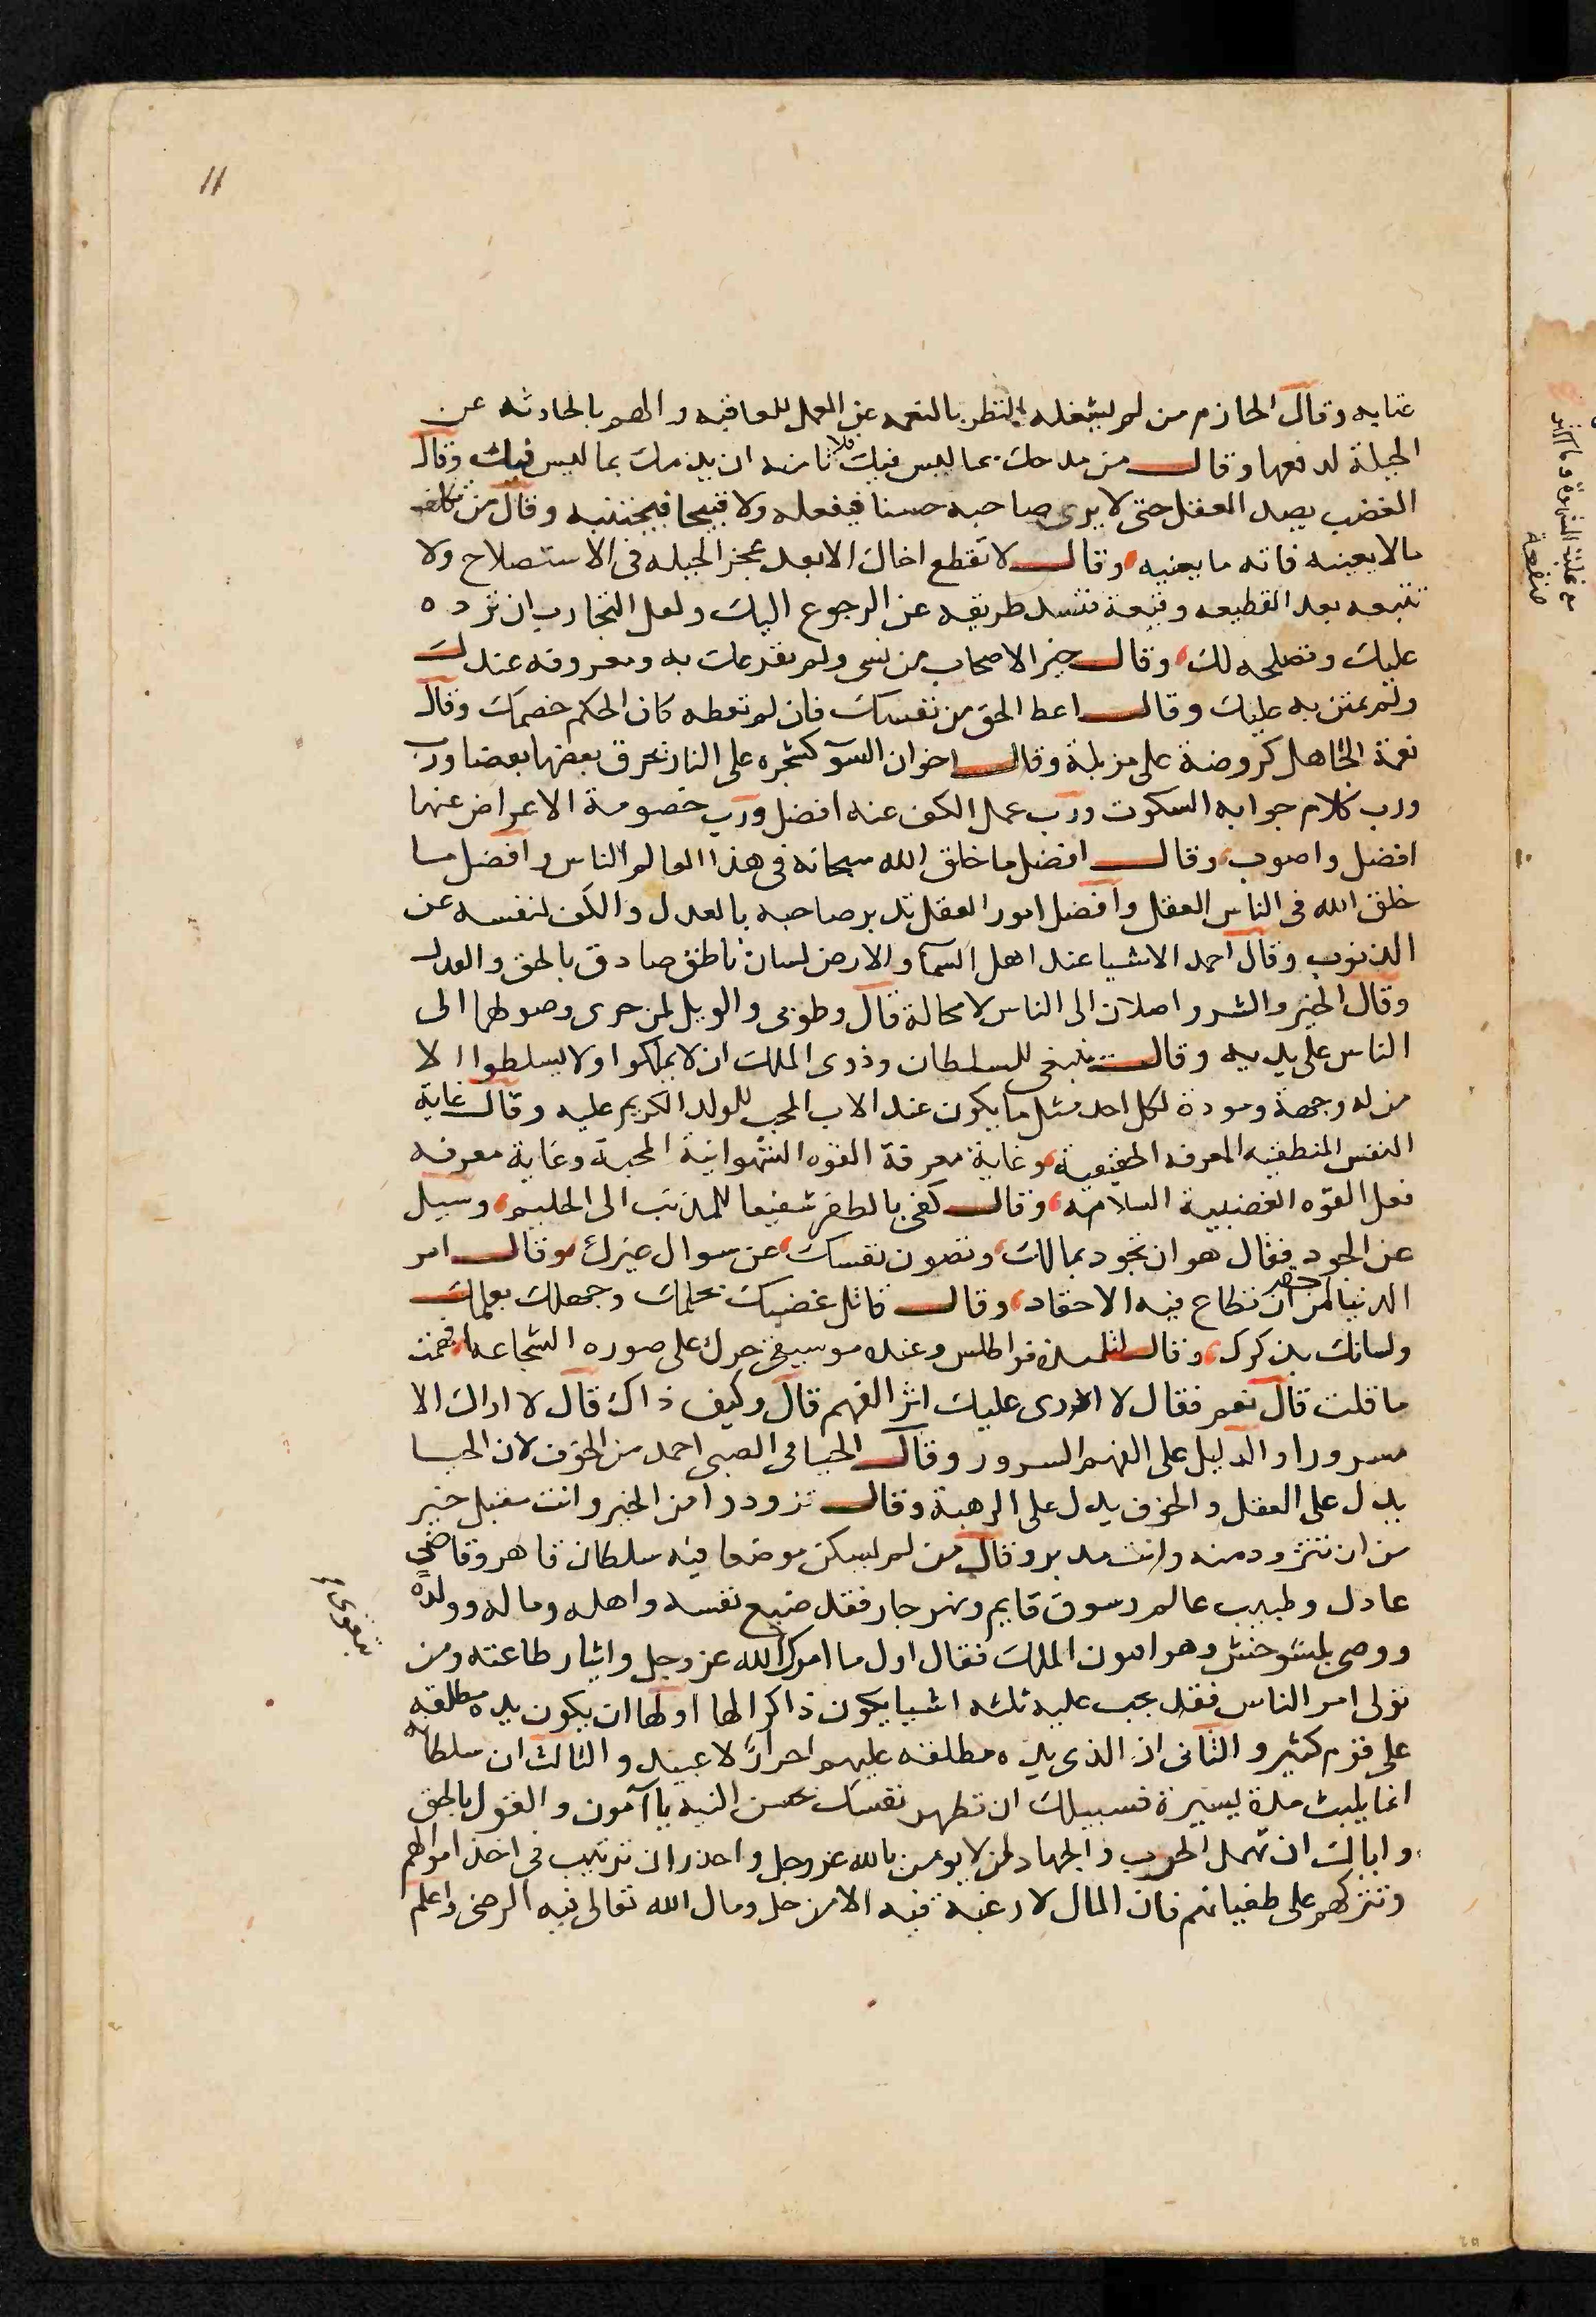 11
عنايه وقال الحازم من لم يشغله النظر بالنعمه عن العمل للعاقبه والهم بالحادثه عن
الحيلة لدفعها وقال من مدحك بما ليس فيك فلا تامنه ان يذمك بما ليس فيك وقال
الغضب يصد العقل حتى لا يرى صاحبه حسنا فيفعله ولا قبيحا فيجتنبه وقال من تكلف
مالا يعنيه فاته ما يعنيه وقال لا تقطع اخاك الا بعد عجز الحيله فى الاستصلاح ولا
تتبعه بعد القطيعه وقيعة فتسد طريقه عن الرجوع اليك ولعل التجارب ان ترده
عليك وتصلحه لك وقال خير الاصحاب من نسى ولم يقرعك به ومعروفه عندك
ولم يمتن به عليك وقال اعط الحق من نفسك فان لم تعطه كان الحكم خصمك وقال
نعمة الجاهل كروضة على مزبلة وقال اخوان السوٓ كشجره على النار تحرق بعضها بعضا ورب
ورب كلام جوابه السكوت ورب عمل الكف عنه افضل ورب خصومة الاعراض عنها
افضل واصوب وقال افضل ما خلق الله سبحانه فى هذا العالم الناس وافضل ما
خلق الله فى الناس العقل وافضل امور العقل تدبر صاحبه بالعدل والكف لنفسه عن
الذنوب وقال احمد الاشيا عند اهل السمآ والارض لسان ناطق صادق بالحق والعدل
وقال الخير والشر واصلان الى الناس لا محالة قال وطوبى والويل لمن جرى وصولهما الى
الناس على يديه وقال ينبغى للسلطان وذوى الملك ان لا يملكوا ولا يسلطوا الا
من له وجهة ومودة لكل احد مثل ما يكون عند الاب المحب للولد الكريم عليه وقال غاية
النفس المنطقيه المعرفه الحقيقية وغاية معرفة القوه الشهوانية المحبة وغاية معرفه
فعل القوّه الغضبية السلامه وقال كفى بالظفر شفيعا للمذنب الى الحليم وسيل
عن الجود فقال هو ان تجود بمالك وتصون نفسك عن سوال غيرك وقال امر
الدنيا اقصر من ان تطاع فيه الاحقاد وقال قاتل غضبك بحلمك وجهلك بعلمك
ولسانك بذكرك وقال لتلميذه فراطلس وعنده موسيقى حرك على صوره الشجاعه افهمت
ما قلت قال نعم فقال لا ارى عليك اثر الفهم قال وكيف ذاك قال لا اراك الا
مسرورا والدليل على الفهم السرور وقال الحيا فى الصبى احمد من الخوف لان الحيا
يدل على العقل والخوف يدل على الرهبة وقال تزودوا من الخير وانت مقبل خير
من ان تتزود منه وانت مدبر وقال من لم يسكن موضعا فيه سلطان قاهر وقاضى
عادل وطبيب عالم وسوق قايم ونهر جار فقد ضيع نفسه واهله وماله وولده
ووصى بلسوخنس وهو امون الملك فقال اول ما امرك الله عز وجل وايثار طاعته ومن
بتقوى
تولى امر الناس فقد يجب عليه ثلثه اشيا يكون ذاكرا لها اولها ان يكون يده مطلقه
على قوم كثير والثانى اذ الذى يده مطلقه عليهم احرارًا لا عبيد والثالث ان سلطانه
انما يلبث مدة يسيرة فسبيلك ان تطهر نفسك بحسن النيه يا آمون والقول بالحق
واياك ان تهمل الحرب والجهاد لمن لا يومن بالله عز وجل واحذر ان ترتيب فى اخذ اموالهم
وتتركهم على طغيانهم فان المال لا رغبه فيه الا من حل ومال الله تعالى فيه الرضى واعلم
منفعة